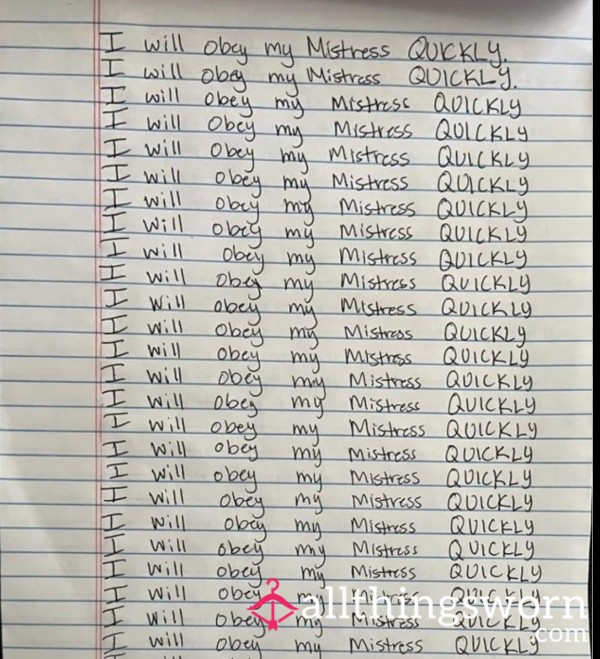 I will obey my Mistress QUICKLY.
I will obey my Mistress QUICKLY.
I will obey my Mistress QUICKLY
I will obey my Mistress QUICKLY
I will obey my Mistress QUICKLY
I will obey my Mistress QUICKLY
I will obey my Mistress QUICKLY
I will obey my Mistress QUICKLY
I will obey my Mistress QUICKLY
I will obey my Mistress QUICKLY
I will obey my Mistress QUICKLY
I will obey my Mistress QUICKLY
I will obey my Mistress QUICKLY
I will obey my Mistress QUICKLY
I will obey my Mistress QUICKLY
I will obey my Mistress QUICKLY
I will obey my Mistress QUICKLY
I will obey my Mistress QUICKLY
I will obey my Mistress QUICKLY
I will obey my Mistress QUICKLY
I will obey my Mistress QUICKLY
I will obey my Mistress QUICKLY
I will obey my Mistress QUICKLY
I will obey my Mistress QUICKLY
I will obey my Mistress QUICKLY
allthingsworn
.com